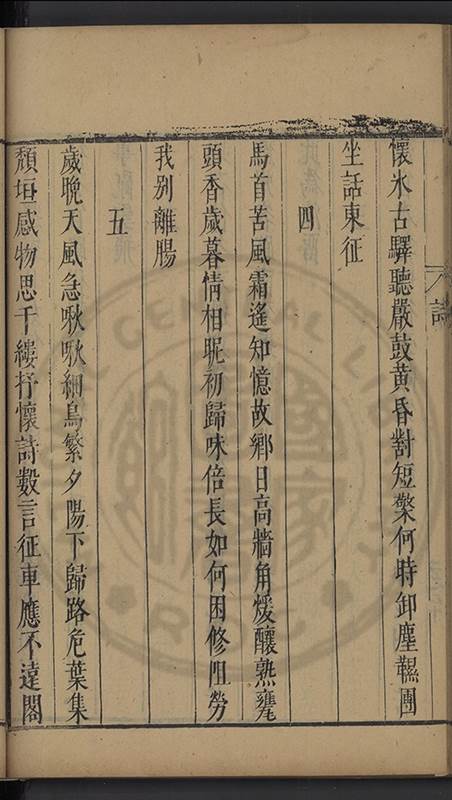 詩
懷氷古驛聽嚴鼓黃昏對短檠何時卸塵鞿團
坐話東征
四
馬首苦風霜遙知憶故鄉日高牆角煖釀熟甕
頭香歲暮情相昵初歸味倍長如何困修阻勞
我别離腸
五
歲晚天風急啾啾細鳥繁夕陽下歸路危葉集
頹垣感物思千縷抒懷詩數言征車應不遠閣